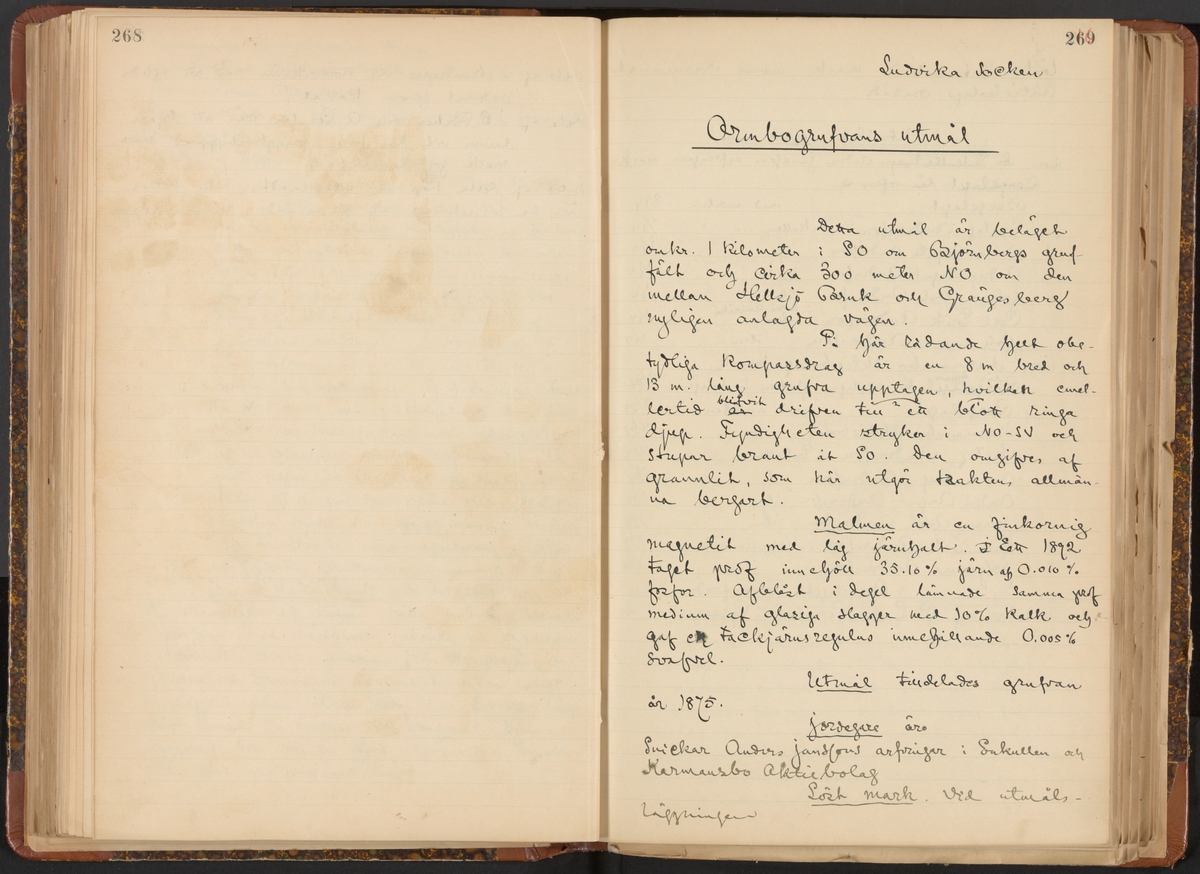 268
269
Ludvika Socken
Ormbogrufvans utmål
Detta utmål är beläget
omkr. 1 kilometer i SO om Björnbergs gruf-
fält och cirka 300 meter NO om den
mellan Hellsjö Bruk och Grängesberg
nyligen anlagda vägen.
På här rådande helt obe-
tydliga kompassdrag är en 8 m bred och
13 m. lång grufva upptagen, hvilken emel-
lertid blifvit drifven till ett blott ringa
djup. Fyndigheten stryker i NO-SV och
stupar brant åt SO. Den omgifves af
granulit, som här utgör traktens allmän-
na bergart.
Malmen är en finkornig
magnetit med låg järnhalt. Ett 1892
taget prof innehöll 35.10% järn och 0.010%
fosfor. Afblåst i degel lämnade samma prof
medium af glasiga slagger med 10% kalk och
gaf en tackjärnsregulus innehållande 0.005%
svafvel.
Utmål tilldelades grufvan
år 1875.
Jordegare äro
Snickar Anders Janssons arfvingar i och
Karmansbo Aktiebolag
Löst mark. Vid utmåls-
läggningen